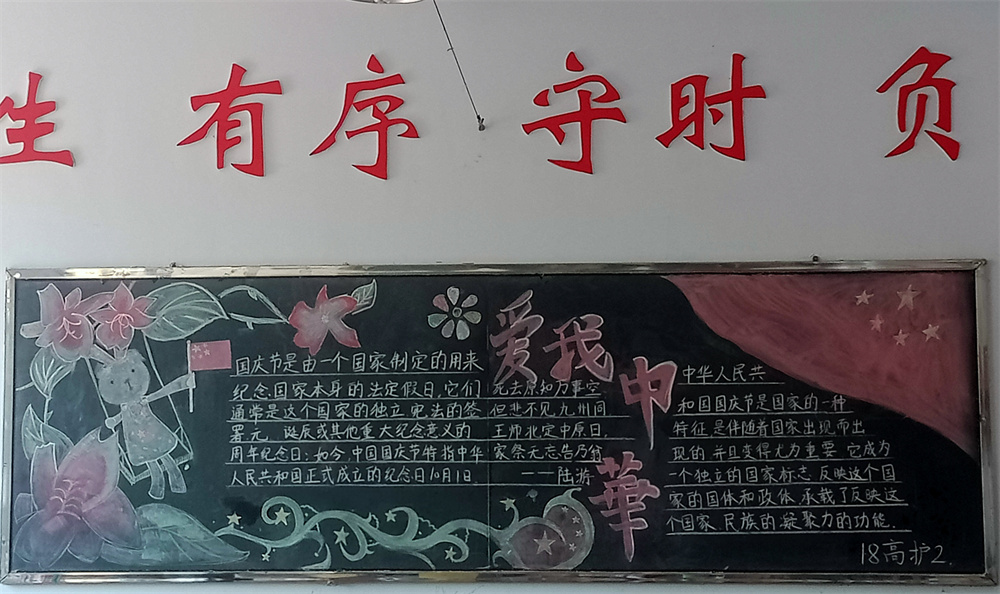 生 有序 守时 负
国庆节是由一个国家制定的用来
纪念国家本身的法定假日,它们
通常是这个国家的独立、宪法的签
署、元首诞辰或其他重大纪念意义的
周年纪念日;如今,中国国庆节特指中华
人民共和国正式成立的纪念日10月1日.
爱我中華
死去原知万事空
但悲不见九州同
王师北定中原日
家祭无忘告乃翁
——陆游
中华人民共
和国国庆节是国家的一种
特征,是伴随着国家出现而出
现的,并且变得尤为重要,它成为
一个独立的国家标志,反映这个国
家的国体和政体,承载了反映这
个国家、民族的凝聚力的功能.
18高护2.